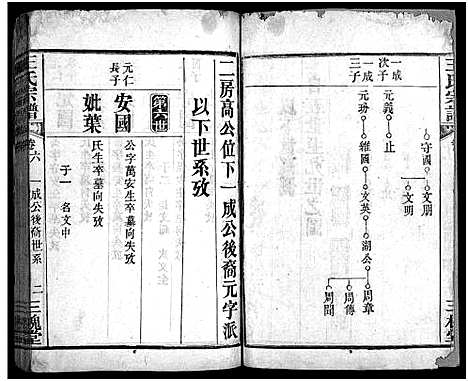 王氏宗譜
三槐堂
守國
文朋
文明
一成次子
元義
止
一成三子
元玢
維國
文英
湖公
周章
周傳
周聞
二房高公位下一成公後裔元字派
以下世系攷
第六世
元仁長子
安國
公字萬安生卒墓向失攷
妣葉
氏生卒墓向失攷
子一 名文中
王氏宗譜
卷六
一成公後裔世系
二
三槐堂